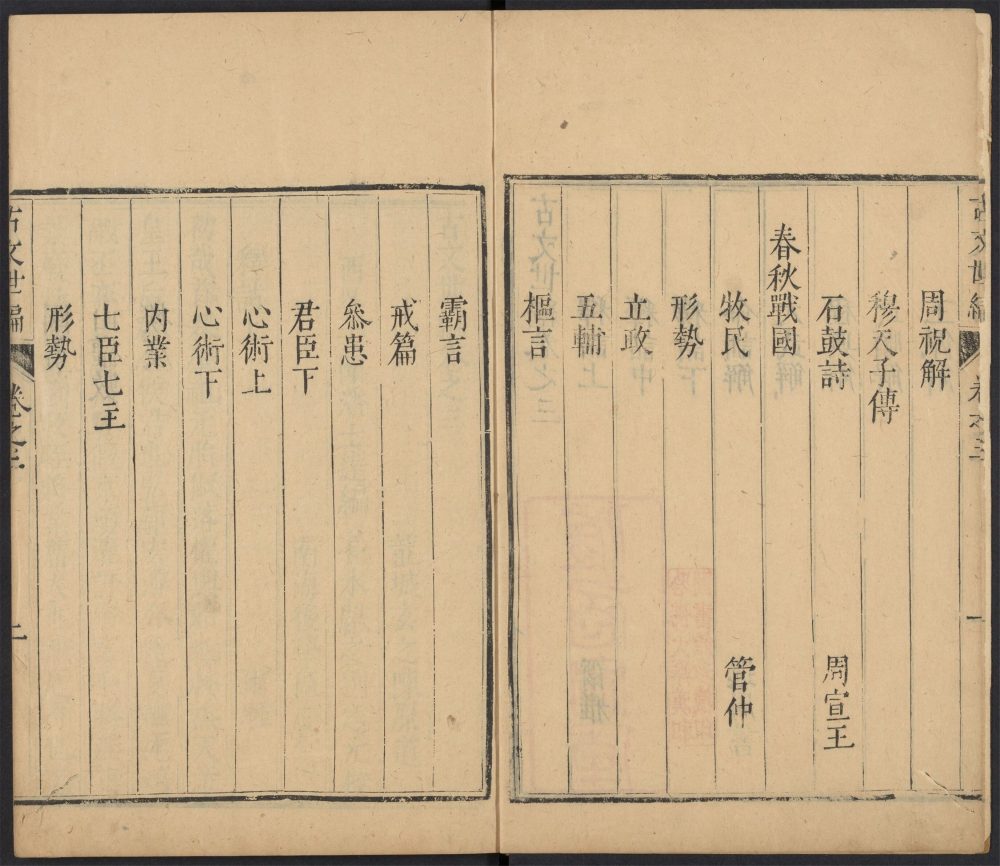 古文世編 卷之三 一
周祝解
穆天子傳
石鼓詩 周宣王
春秋戰國
牧民 管仲
形勢
立政
五輔
樞言
霸言
戒篇
叅患
君臣下
心術上
心術下
內業
七臣七主
形勢
古文世編 卷之三 二